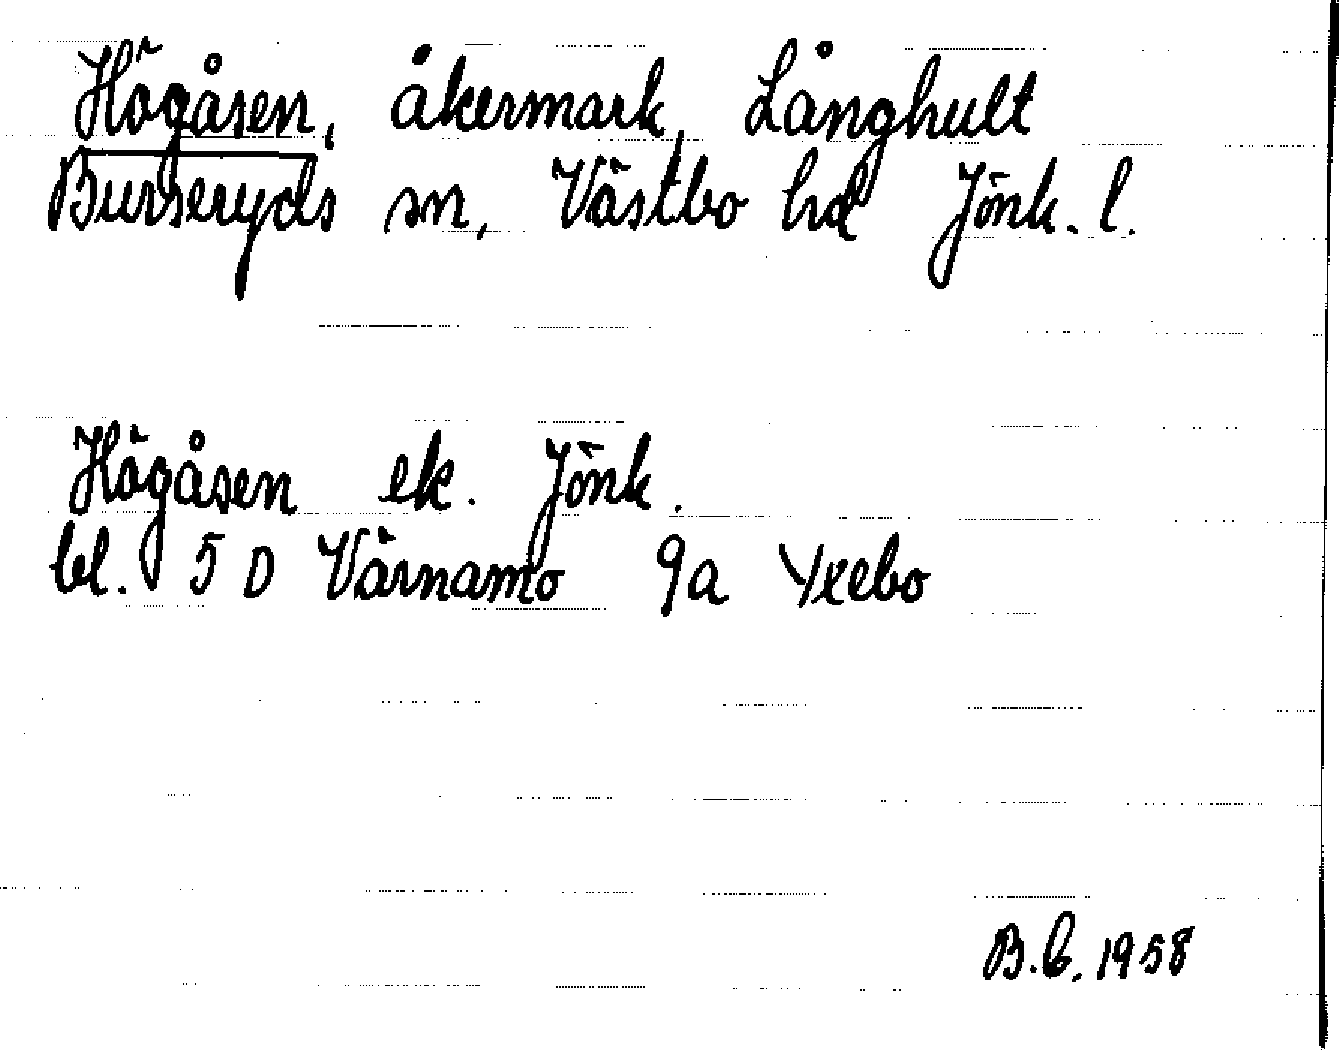 Högåsen, åkermark, Långhult
Burseryds sn, Västbo hd Jönk. l.
Högåsen ek. Jönk.
bl. 5 D Värnamo 9a Yxebo
B.E. 1958